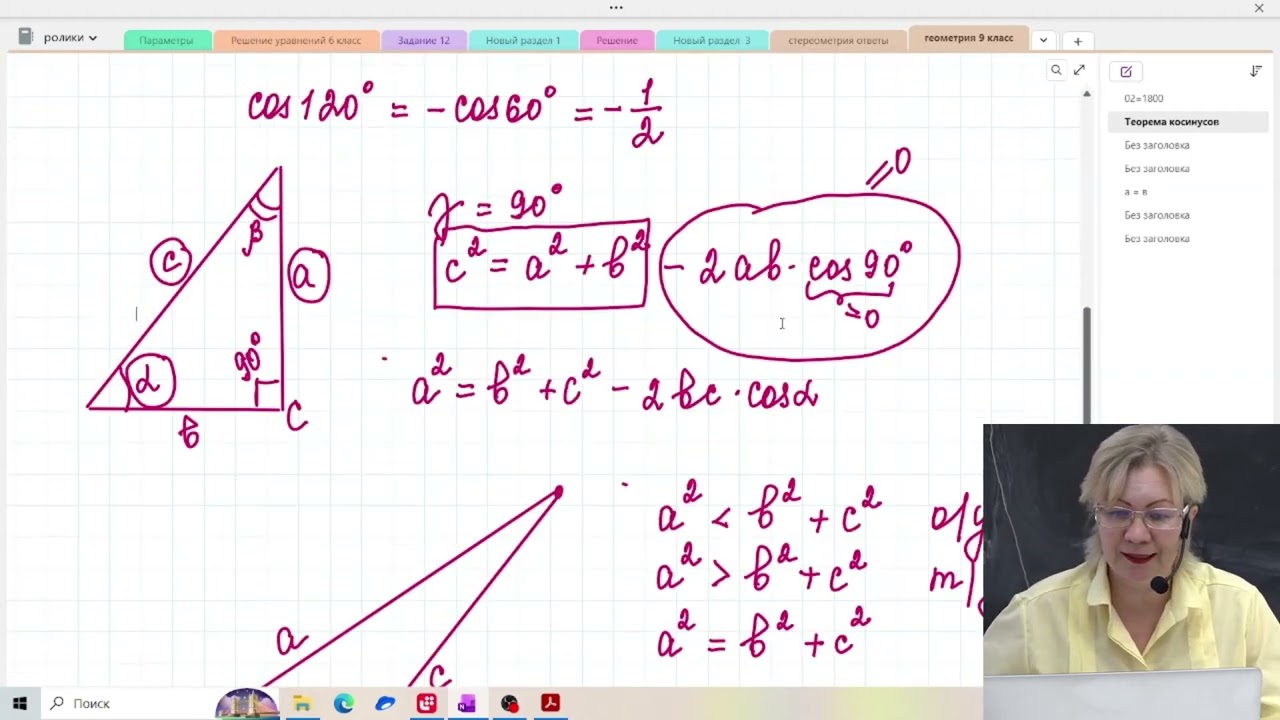 ...
ролики
Параметры
Решение уравнений 6 класс
Задание 12
Новый раздел 1
Решение
Новый раздел 3
стереометрия ответы
геометрия 9 класс
02=1800
Теорема косинусов
Без заголовка
Без заголовка
а = в
Без заголовка
Без заголовка
cos120° = -cos60° = -1/2
γ = 90°
c² = a² + b² - 2ab · cos90° = 0
= 0
β
c
a
90°
α
b
C
a² = b² + c² - 2bc · cosα
a² < b² + c² о/у
a² > b² + c² т/
a² = b² + c²
a
c
Поиск